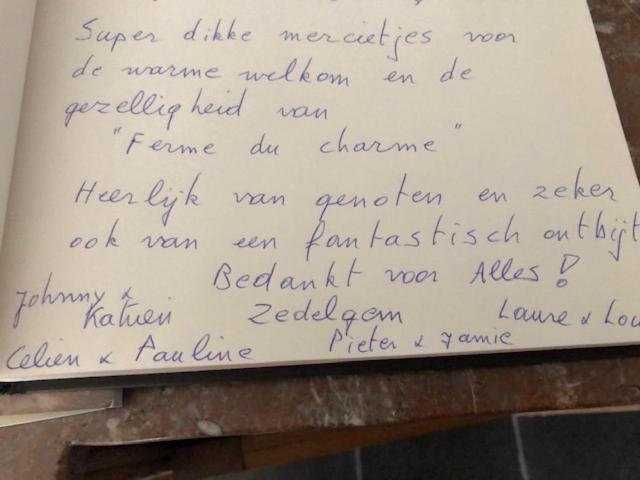 Super dikke mercietjes voor
de warme welkom en de
gezelligheid van
"Ferme du charme"
Heerlijk van genoten en zeker
ook van een fantastisch ontbijt
Bedankt voor Alles!
Johnny &
Katrien Zedelgem Laure & Lou
Celien & Pauline Pieter & Jamie